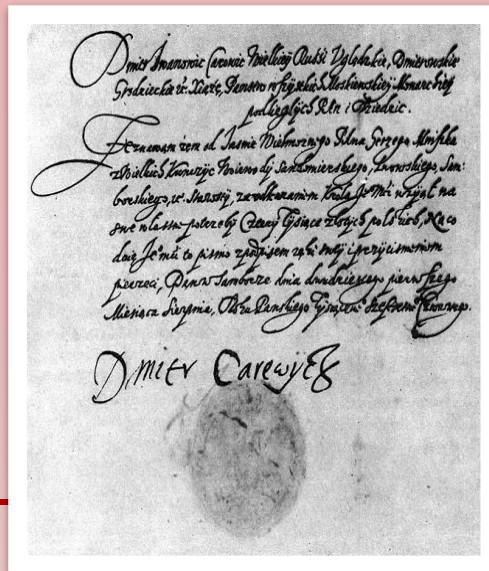 Dmitr Iwanowic Carowic Wielkiey Russi, Uględzkie, Dmitrowskie
Grodzieckie etc. Xiążę,
podległych Pan i Dziedzic.
Zeznawam żem od Jaśnie Wielmożnego Pana Jerzego Mniszka
z Wielkich Kunczyc Woiewody Sandomierskiego, Lwowskiego, Sam-
borskiego, etc. Starosty, za wskazaniem Króla Je Mci wziął na
swe własne potrzeby Cztery Tysiące złotych polskich, Na co
daię Je Mci to pismo z podpisem ręki mey i przyciśnieniem
pieczęci, Dan w Samborze dnia dwudziestego pierwszego
Miesiąca Sierpnia, Roku Pańskiego Tysiącznego Szesetnego Czwartego.
Dmitr Carewycz